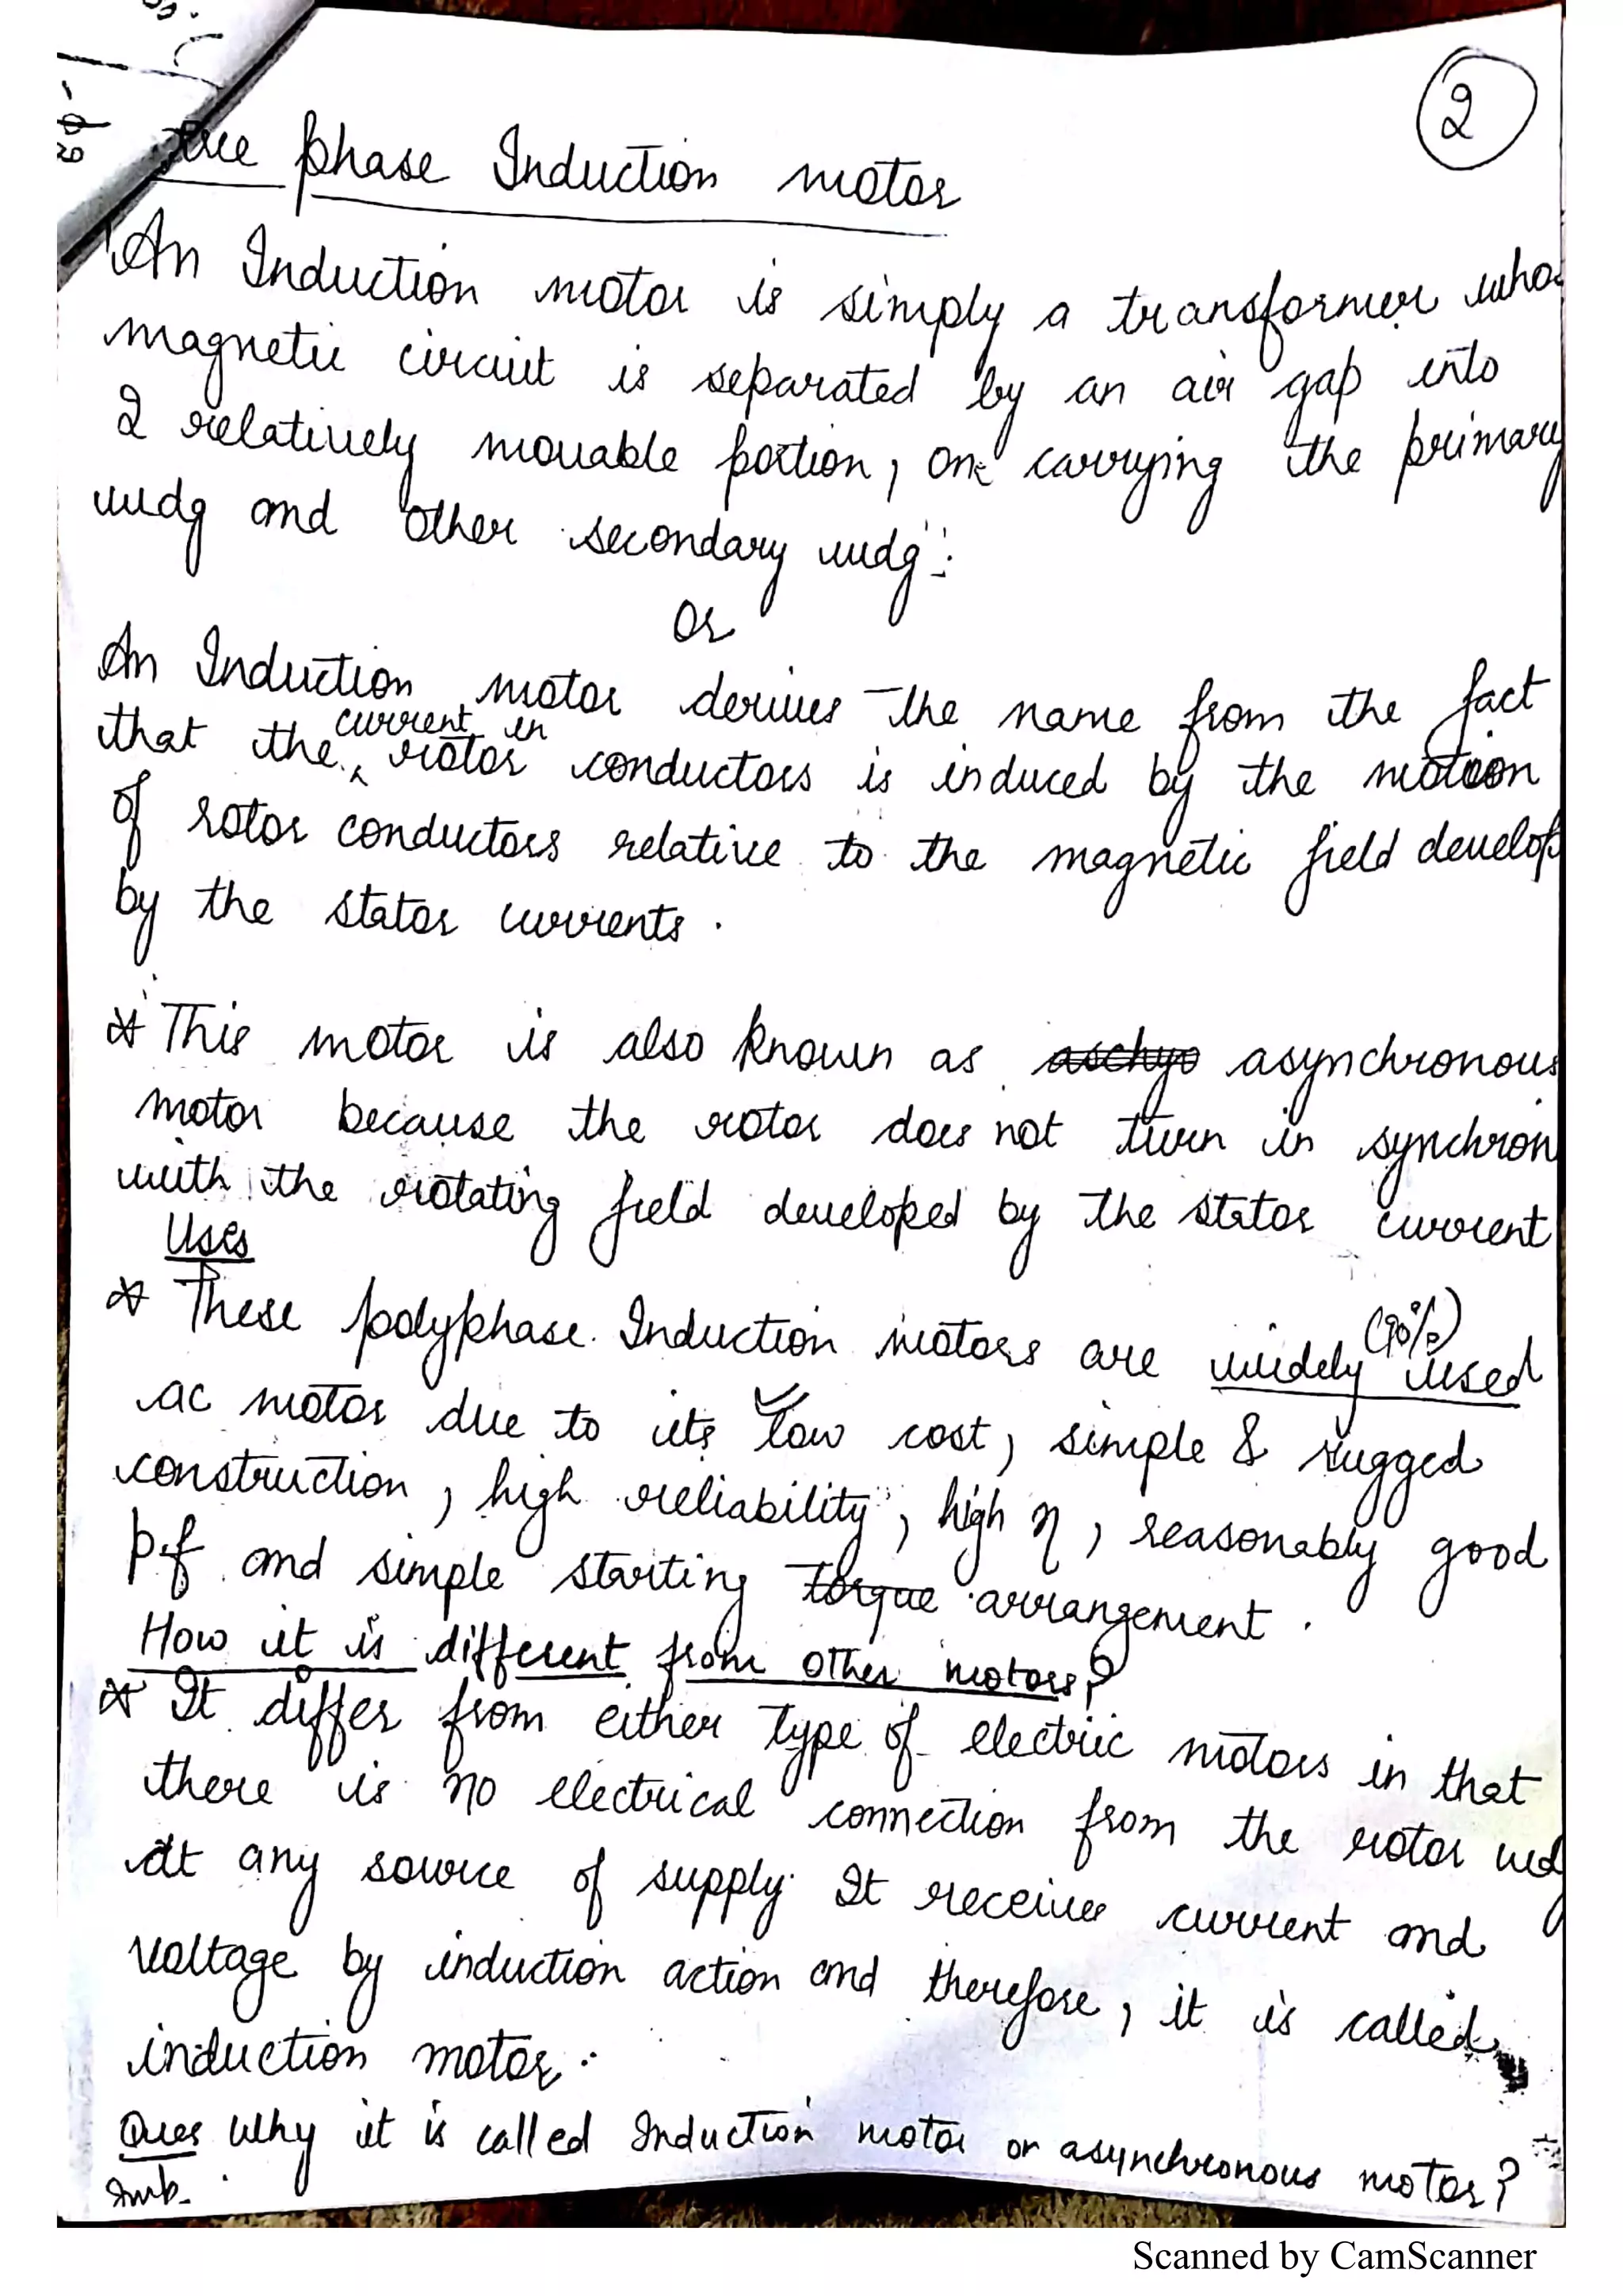 2
phase Induction motor
An Induction motor is simply a transformer whos
magnetic circuit is separated by an air gap into
2 relatively movable portion, one carrying the primary
wdg and other secondary wdg.
Or
An Induction motor derives the name from the fact
that the current in rotor conductors is induced by the motion
of rotor conductors relative to the magnetic field develop
by the stator currents.
* This motor is also known as aschyo asynchronous
motor because the rotor does not turn in synchron
with the rotating field developed by the stator current
Uses
* These polyphase Induction motors are widely (90%) used
ac motor due to its low cost, simple & rugged
construction, high reliability, high η, reasonably good
p.f and simple starting torque arrangement.
How it is different from other motors?
* It differ from either type of electric motors in that
there is no electrical connection from the rotor wdg
at any source of supply. It receives current and
voltage by induction action and therefore, it is called
induction motor.
Ques Why it is called Induction motor or asynchronous motor?
Scanned by CamScanner